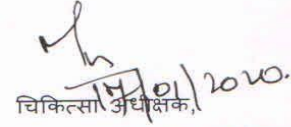 17/01/2020.
चिकित्सा अधीक्षक,